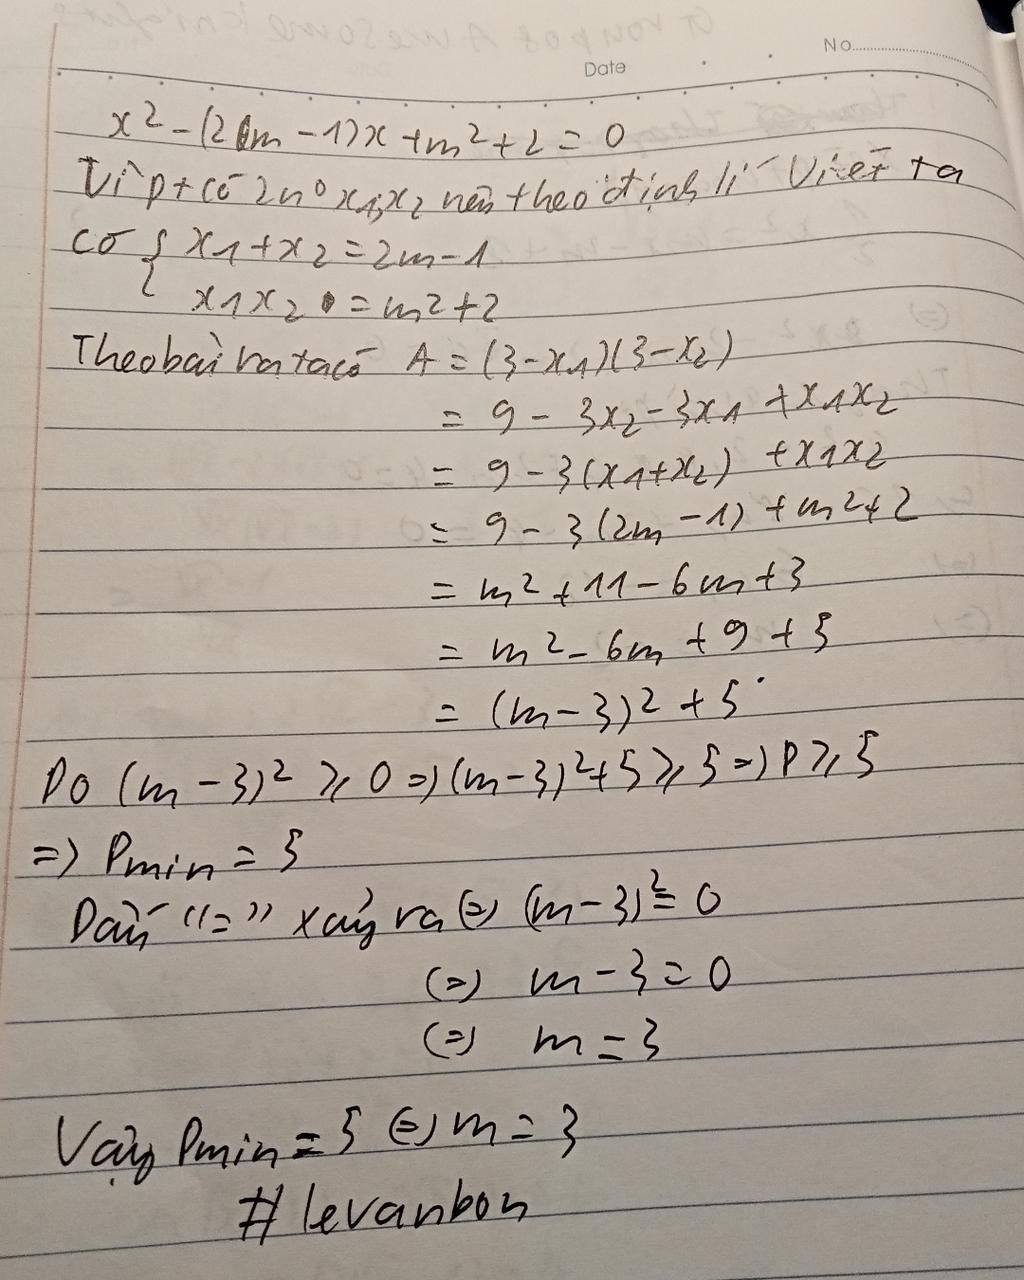 No.
Date
x2-(2m-1)x+m2+2=0
Vì pt có 2no x1,x2 nên theo định lí Viet ta
có { x1+x2=2m-1
x1x2=m2+2
Theo bài ra ta có A=(3-x1)(3-x2)
= 9-3x2-3x1+x1x2
= 9-3(x1+x2)+x1x2
= 9-3(2m-1)+m2+2
= m2+11-6m+3
= m2-6m+9+5
= (m-3)2+5
Do (m-3)2 ⩾ 0 =) (m-3)2+5 ⩾ 5 =) P ⩾ 5
=) Pmin = 5
Dấu "=" xảy ra (=) (m-3)2=0
(=) m-3=0
(=) m=3
Vậy Pmin = 5 (=) m=3
#levanbon